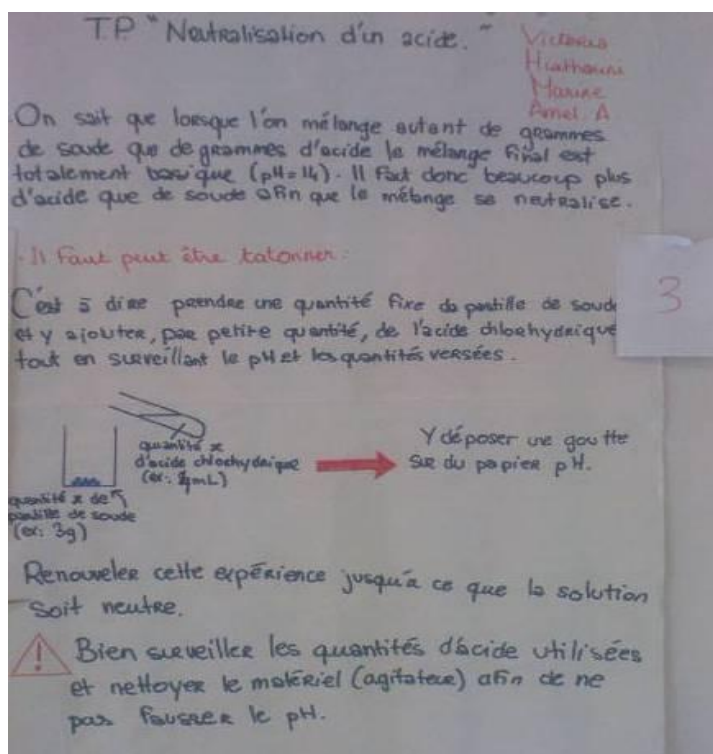 TP "Neutralisation d'un acide."
Victoria
Marine
Amel. A
On sait que lorsque l'on mélange autant de grammes
de soude que de grammes d'acide le mélange final est
totalement basique (pH=14). Il faut donc beaucoup plus
d'acide que de soude afin que le mélange se neutralise.
Il faut peut être tatonner:
3
C'est à dire prendre une quantité fixe de pastille de soude
et y ajouter, par petite quantité, de l'acide chlorhydrique
tout en surveillant le pH et les quantités versées.
quantité x
d'acide chlorhydrique
(ex: mL)
Y déposer une goutte
sur du papier pH.
quantité x de
pastille de soude
(ex: 3g)
Renouveler cette expérience jusqu'à ce que la solution
soit neutre.
! Bien surveiller les quantités d'acide utilisées
et nettoyer le matériel (agitateur) afin de ne
pas fausser le pH.